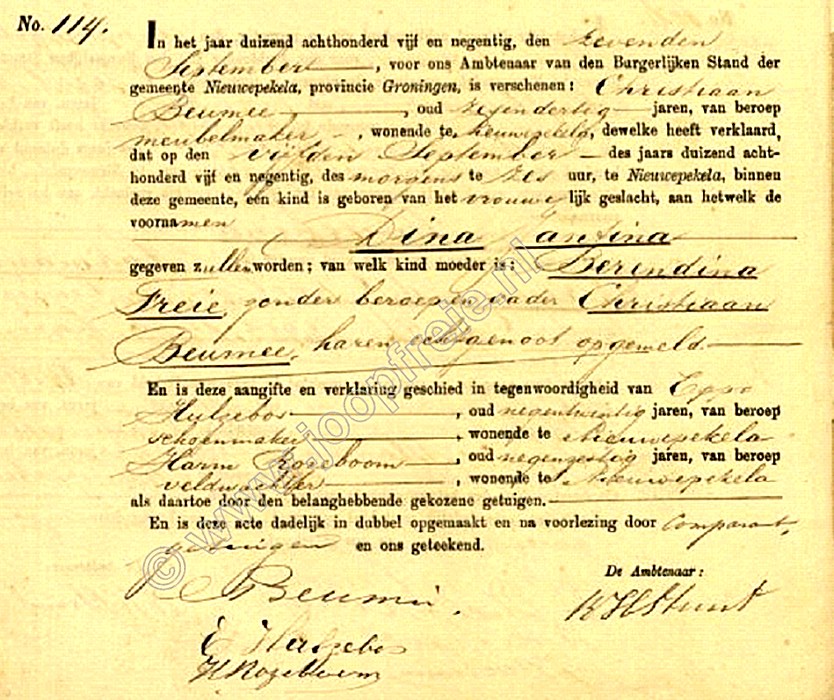 No. 114.
In het jaar duizend achthonderd vijf en negentig, den zevenden
September, voor ons Ambtenaar van den Burgerlijken Stand der
gemeente Nieuwepekela, provincie Groningen, is verschenen: Christiaan
Beumee, oud zesendertig jaren, van beroep
meubelmaker, wonende te Nieuwepekela, dewelke heeft verklaard,
dat op den vijfden September des jaars duizend acht-
honderd vijf en negentig, des morgens te zes uur, te Nieuwepekela, binnen
deze gemeente, een kind is geboren van het vrouwelijk geslacht, aan hetwelk de
voornamen Dina Jantina
gegeven zullen worden; van welk kind moeder is: Berendina
Freie, zonder beroep en vader Christiaan
Beumee, haren echtgenoot opgemeld
En is deze aangifte en verklaring geschied in tegenwoordigheid van Eppo
Hulzebos, oud negentwintig jaren, van beroep
schoenmaker, wonende te Nieuwepekela
Harm Rozeboom, oud jaren, van beroep
veldwachter, wonende te Nieuwepekela
als daartoe door den belanghebbende gekozene getuigen.
En is deze acte dadelijk in dubbel opgemaakt en na voorlezing door Comparant,
getuigen en ons geteekend.
De Ambtenaar:
Beumee.
E Hulzebos
H Rozeboom
© www.joopfreie.nl